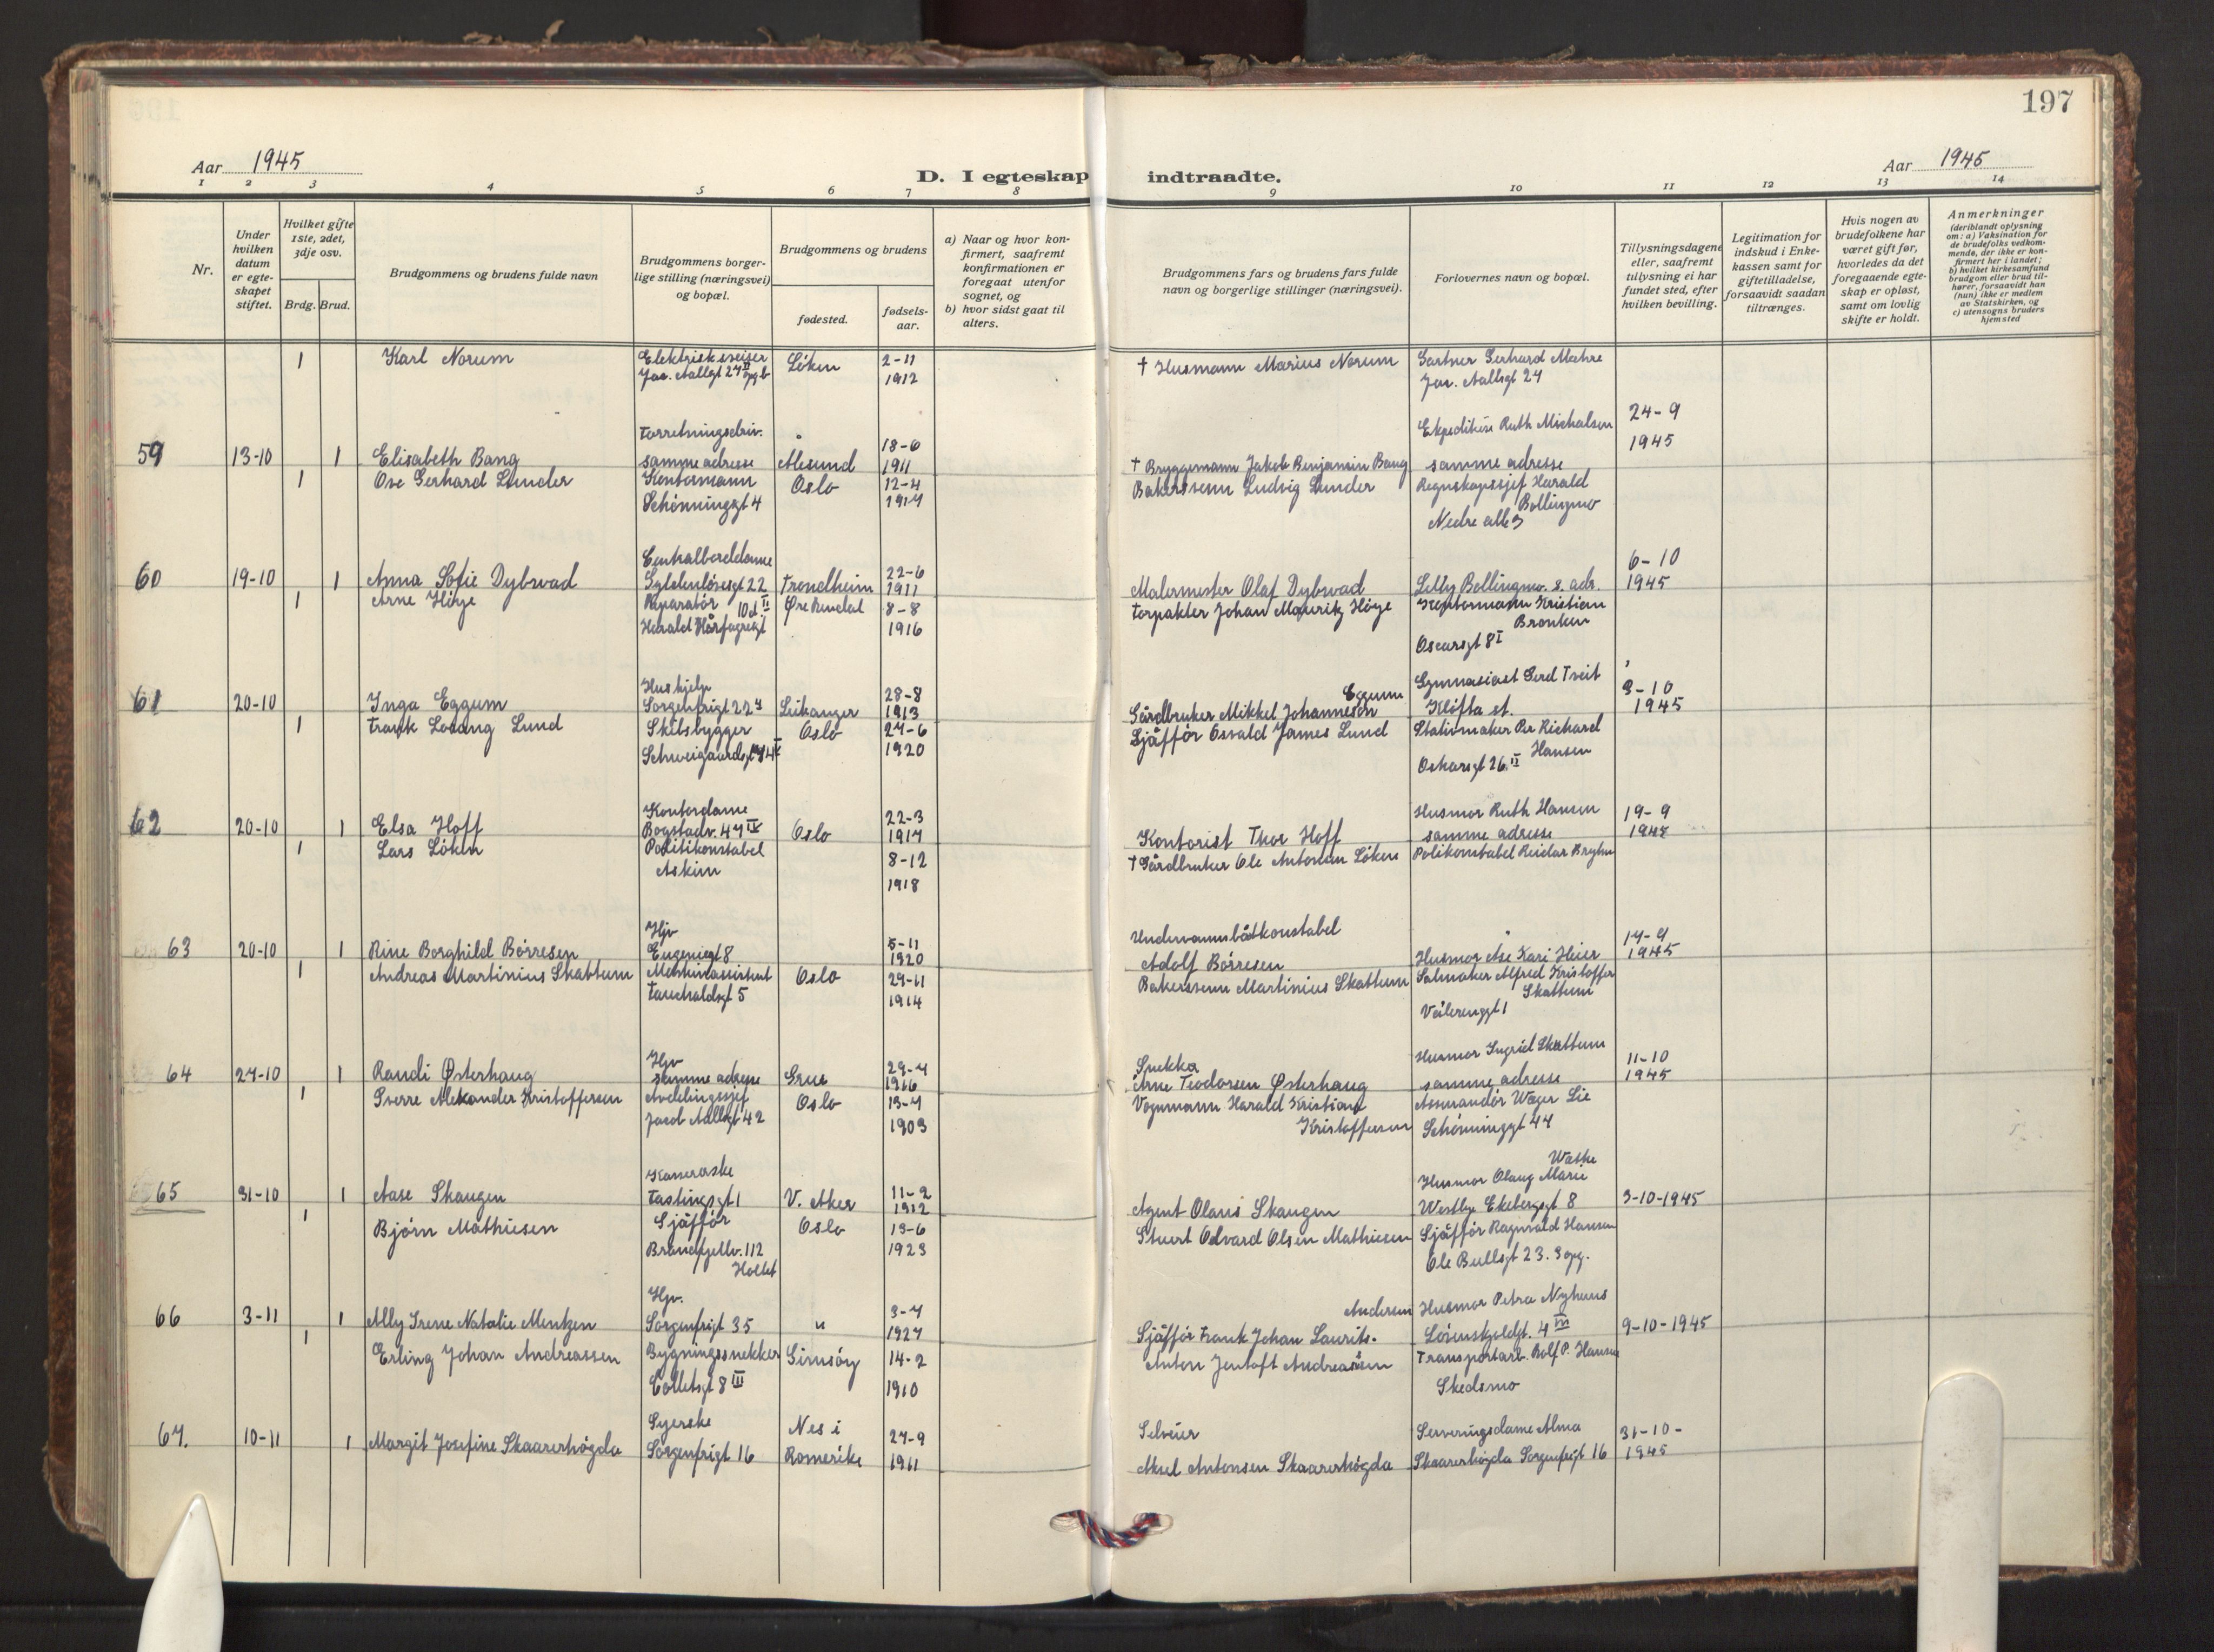 197
Aar 1945
D. I egteskap indtraadte.
Aar 1945
1 2 3 4 5 6 7 8 9 10 11 12 13 14
Nr.
Under hvilken datum er egteskapet stiftet.
Hvilket gifte 1ste, 2det, 3dje osv.
Brdg. Brud.
Brudgommens og brudens fulde navn
Brudgommens borgerlige stilling (næringsvei) og bopæl.
Brudgommens og brudens
fødested.
fødselsaar.
a) Naar og hvor konfirmert, saafremt konfirmationen er foregaat utenfor sognet, og
b) hvor sidst gaat til alters.
Brudgommens fars og brudens fars fulde navn og borgerlige stillinger (næringsvei).
Forlovernes navn og bopæl.
Tillysningsdagene eller, saafremt tillysning ei har fundet sted, efter hvilken bevilling.
Legitimation for indskud i Enkekassen samt for giftetilladelse, forsaavidt saadan tiltrænges.
Hvis nogen av brudefolkene har været gift før, hvorledes da det foregaaende egteskap er opløst, samt om lovlig skifte er holdt.
Anmerkninger (deriblandt oplysning om: a) Vaksination for de brudefolks vedkommende, der ikke er konfirmert her i landet; b) hvilket kirkesamfund brudgom eller brud tilhører, forsaavidt han (hun) ikke er medlem av Statskirken, og c) utensogns bruders hjemsted
1 Karl Norum Elektrisksveiser Løken 2-11 † Husmann Marius Norum Gartner Gerhard Mæhre
Jac. Aallsgt 27 II opg b 1912 Jac. Aallsgt 24
Forretningsdriv. Ekspeditrise Ruth Michalsen 24-9
59 13-10 1 Elisabeth Bang samme adresse Ålesund 18-6 1911 † Bryggemann Jakob Benjamin Bang samme adresse 1945
1 Ove Gerhard Lunder Kontormann Oslo 12-4 Bakersvenn Ludvig Lunder Regnskapssjef Harald
Schønninggt 4 1917 Bollingmo
Nedre alle 3
Centralborddame 6-10
60 19-10 1 Anna Sofie Dybwad Gyldenløvesgt 22 Trondheim 22-6 1911 Malermester Olaf Dybwad Lelly Bollingmo. s. adr. 1945
1 Arne Høye Reparatør Øre Rendal 8-8 Forpakter Johan Mauritz Høye Kontormann Kristian
Harald Hårfagresgt 10d II 1916 Bronken
Oscarsgt 8 I
Hushjelp 28-8 Eggum Gymnasiast Gerd Tveit 3-10
61 20-10 Inga Eggum Sorgenfrigt 22 Leikanger 1913 Gårdbruker Mikkel Johannesen Kløfta st. 1945
1 Frank Lobang Lund Skiltsbygger Oslo 27-6 Sjåffør Osvald James Lund Stativmaker Per Richard
Schweigaardsgt 1920 Hansen
Oskarsgt 26 II
Kontordame 22-3 Husmor Ruth Hansen 19-9
62 20-10 1 Elsa Hoff Bogstadv. 47 IV Oslo 1917 Kontorist Thor Hoff samme adresse
1 Lars Løken Politikonstabel 8-12 † Gårdbruker Ole Antonsen Løken Polikonstabel Reidar
Askim 1918
Hjv 5-11 Undervannsbåtkonstabel
63 20-10 1 Rine Borghild Børresen Eugeniegt 8 1920 Adolf Børresen Husmor Åse Kari Heier 1945
1 Andreas Martinius Skattum Maskinassistent Oslo 29-11 Bakersvenn Martinius Skattum Salmaker Alfred Kristoffer
Fauchaldsgt 5 1914 Skattum
Vålerenggt 1
Hjv 29-4 Snekker Husmor Ingrid Skattum 11-10
64 27-10 1 Randi Østerhaug samme adresse Grue 1916 Arne Teodorsen Østerhaug samme adresse 1945
1 Sverre Alexander Kristoffersen Avdelingssjef Oslo 13-7 Vognmann Harald Kristian Assurandør Wæger Lie
Jacob Aallsgt 42 1903 Kristoffersen Schønninggt 44
Kassererske Husmor Olaug Marie
65 31-10 1 Aase Skaugen Fastingsgt 1 V. Aker 11-2 1912 Agent Olaus Skaugen Westbye Ekebergsgt 8 3-10-1945
1 Bjørn Mathiesen Sjåffør Oslo 13-6 Stuert Edvard Olsen Mathiesen Sjåffør Ragnvald Hansen
Brannfjellv. 112 1923 Ole Bullsgt 23. 3 opg.
Holtet
Hjv. 3-7 Andersen Husmor Petra Nyhuus
66 3-11 1 Ally Irene Natalie Mentzen Sorgenfrigt 35 " 1927 Sjåffør Frank Johan Laurits. Lövenskjoldgt. 4 III 9-10-1945
1 Erling Johan Andreassen Bygningssnekker Gimsøy 14-2 Anton Jentoft Andreassen Transportarb. Rolf P. Hansen
Colletsgt 8 III 1910 Skedsmo
Syerske Nes i 27-9 Selveier Serveringsdame Alma 31-10-
67. 10-11 1 Margit Josefine Skaarerhøgda Sorgenfrigt 16 Romerike 1911 Aksel Antonsen Skaarerhøgda Skaarerhøgda Sorgenfrigt 16 1945